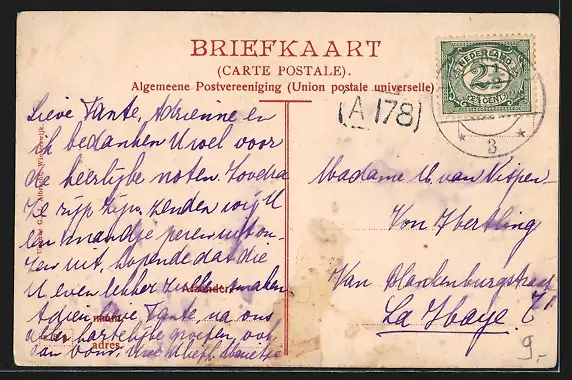 BRIEFKAART
(CARTE POSTALE).
Algemeene Postvereeniging (Union postale universelle)
NEDERLAND
2½
CENT
(A 178)
3
Lieve Tante, Adrienne en
ik bedanken U wel voor
de heerlijke noten. Zoodra
ze rijp zijn, zenden wij U
een mandje peren uit on-
zen uit, hopende dat die
U even lekker zullen smaken
Adieu lieve Tante, na ons
aller hartelijke groeten, ook
aan oom, Uwe
Afzender:
naam
adres.
Madame U. van
Von
Van Blankenburgstraat
La Haye
9.-